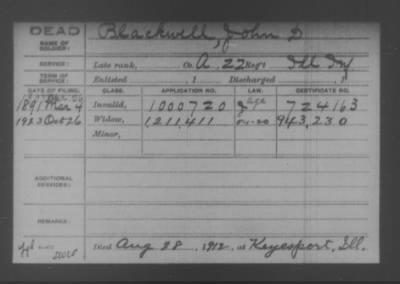 DEAD
NAME OF SOLDIER: Blackwell, John D
SERVICE: Late rank, Co. A, 22 Reg't Ill Inf
TERM OF SERVICE: Enlisted , 1 Discharged , 1
DATE OF FILING. CLASS. APPLICATION NO. LAW. CERTIFICATE NO.
1891 Mar 4 Invalid, 1000720 age 724163
1923 Oct 26 Widow, 1,211,411 943,230
Minor,
ADDITIONAL SERVICES:
REMARKS:
Died Aug 28, 1912, at Keyesport, Ill.